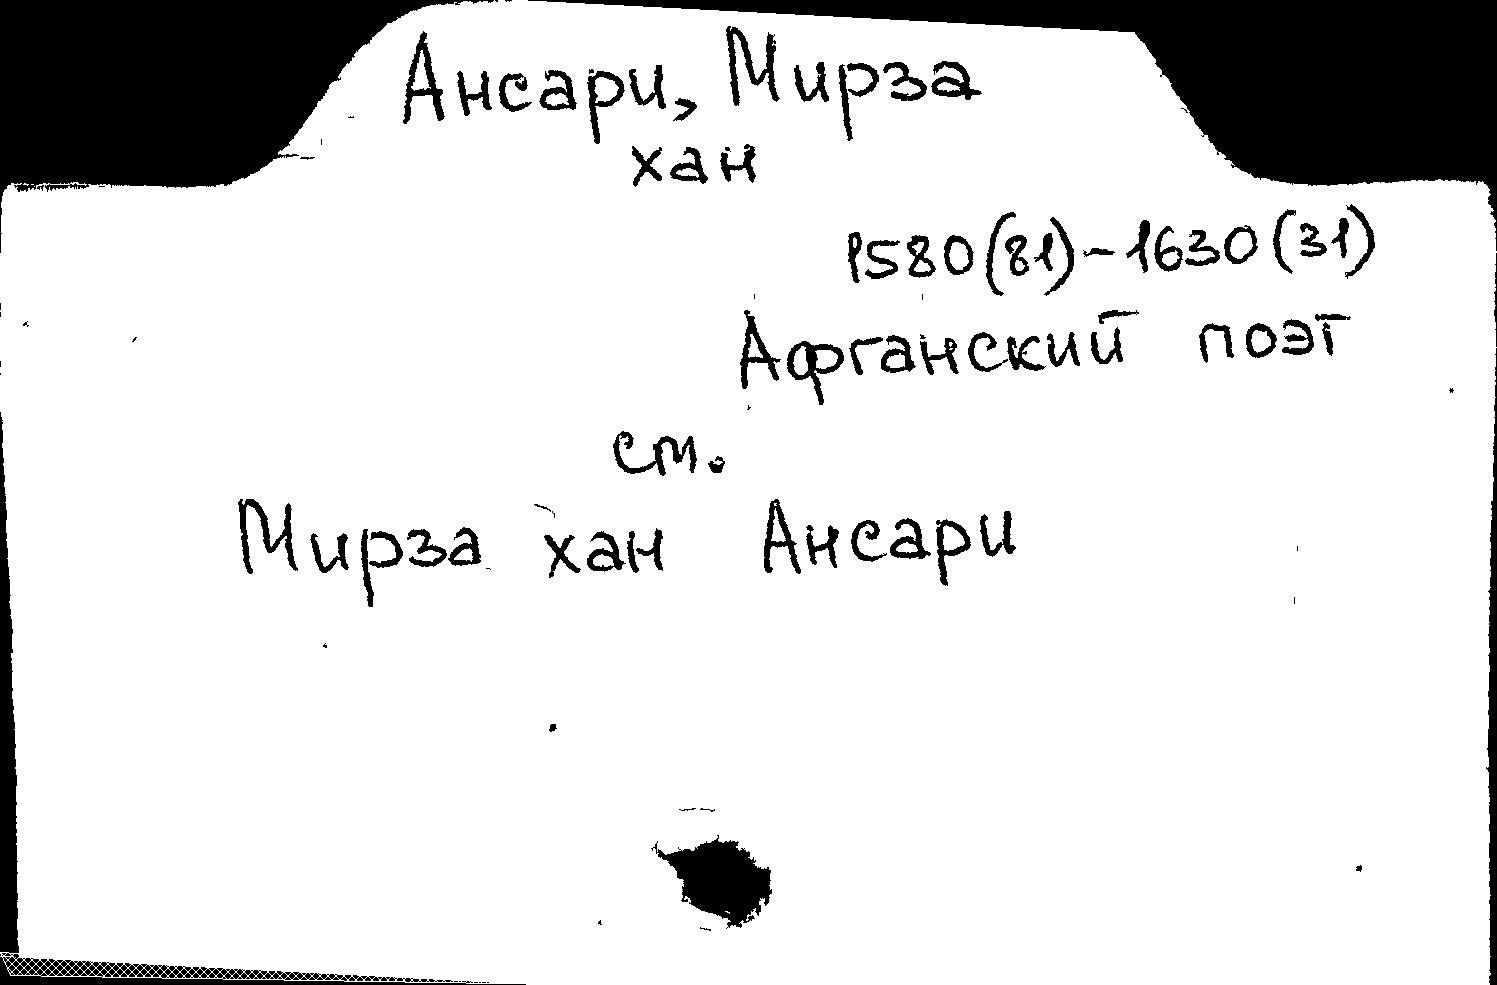 Ансари, Мирза
хан
1580(81)-1630(31)
Афганский поэт
см.
Мирза хан Ансари